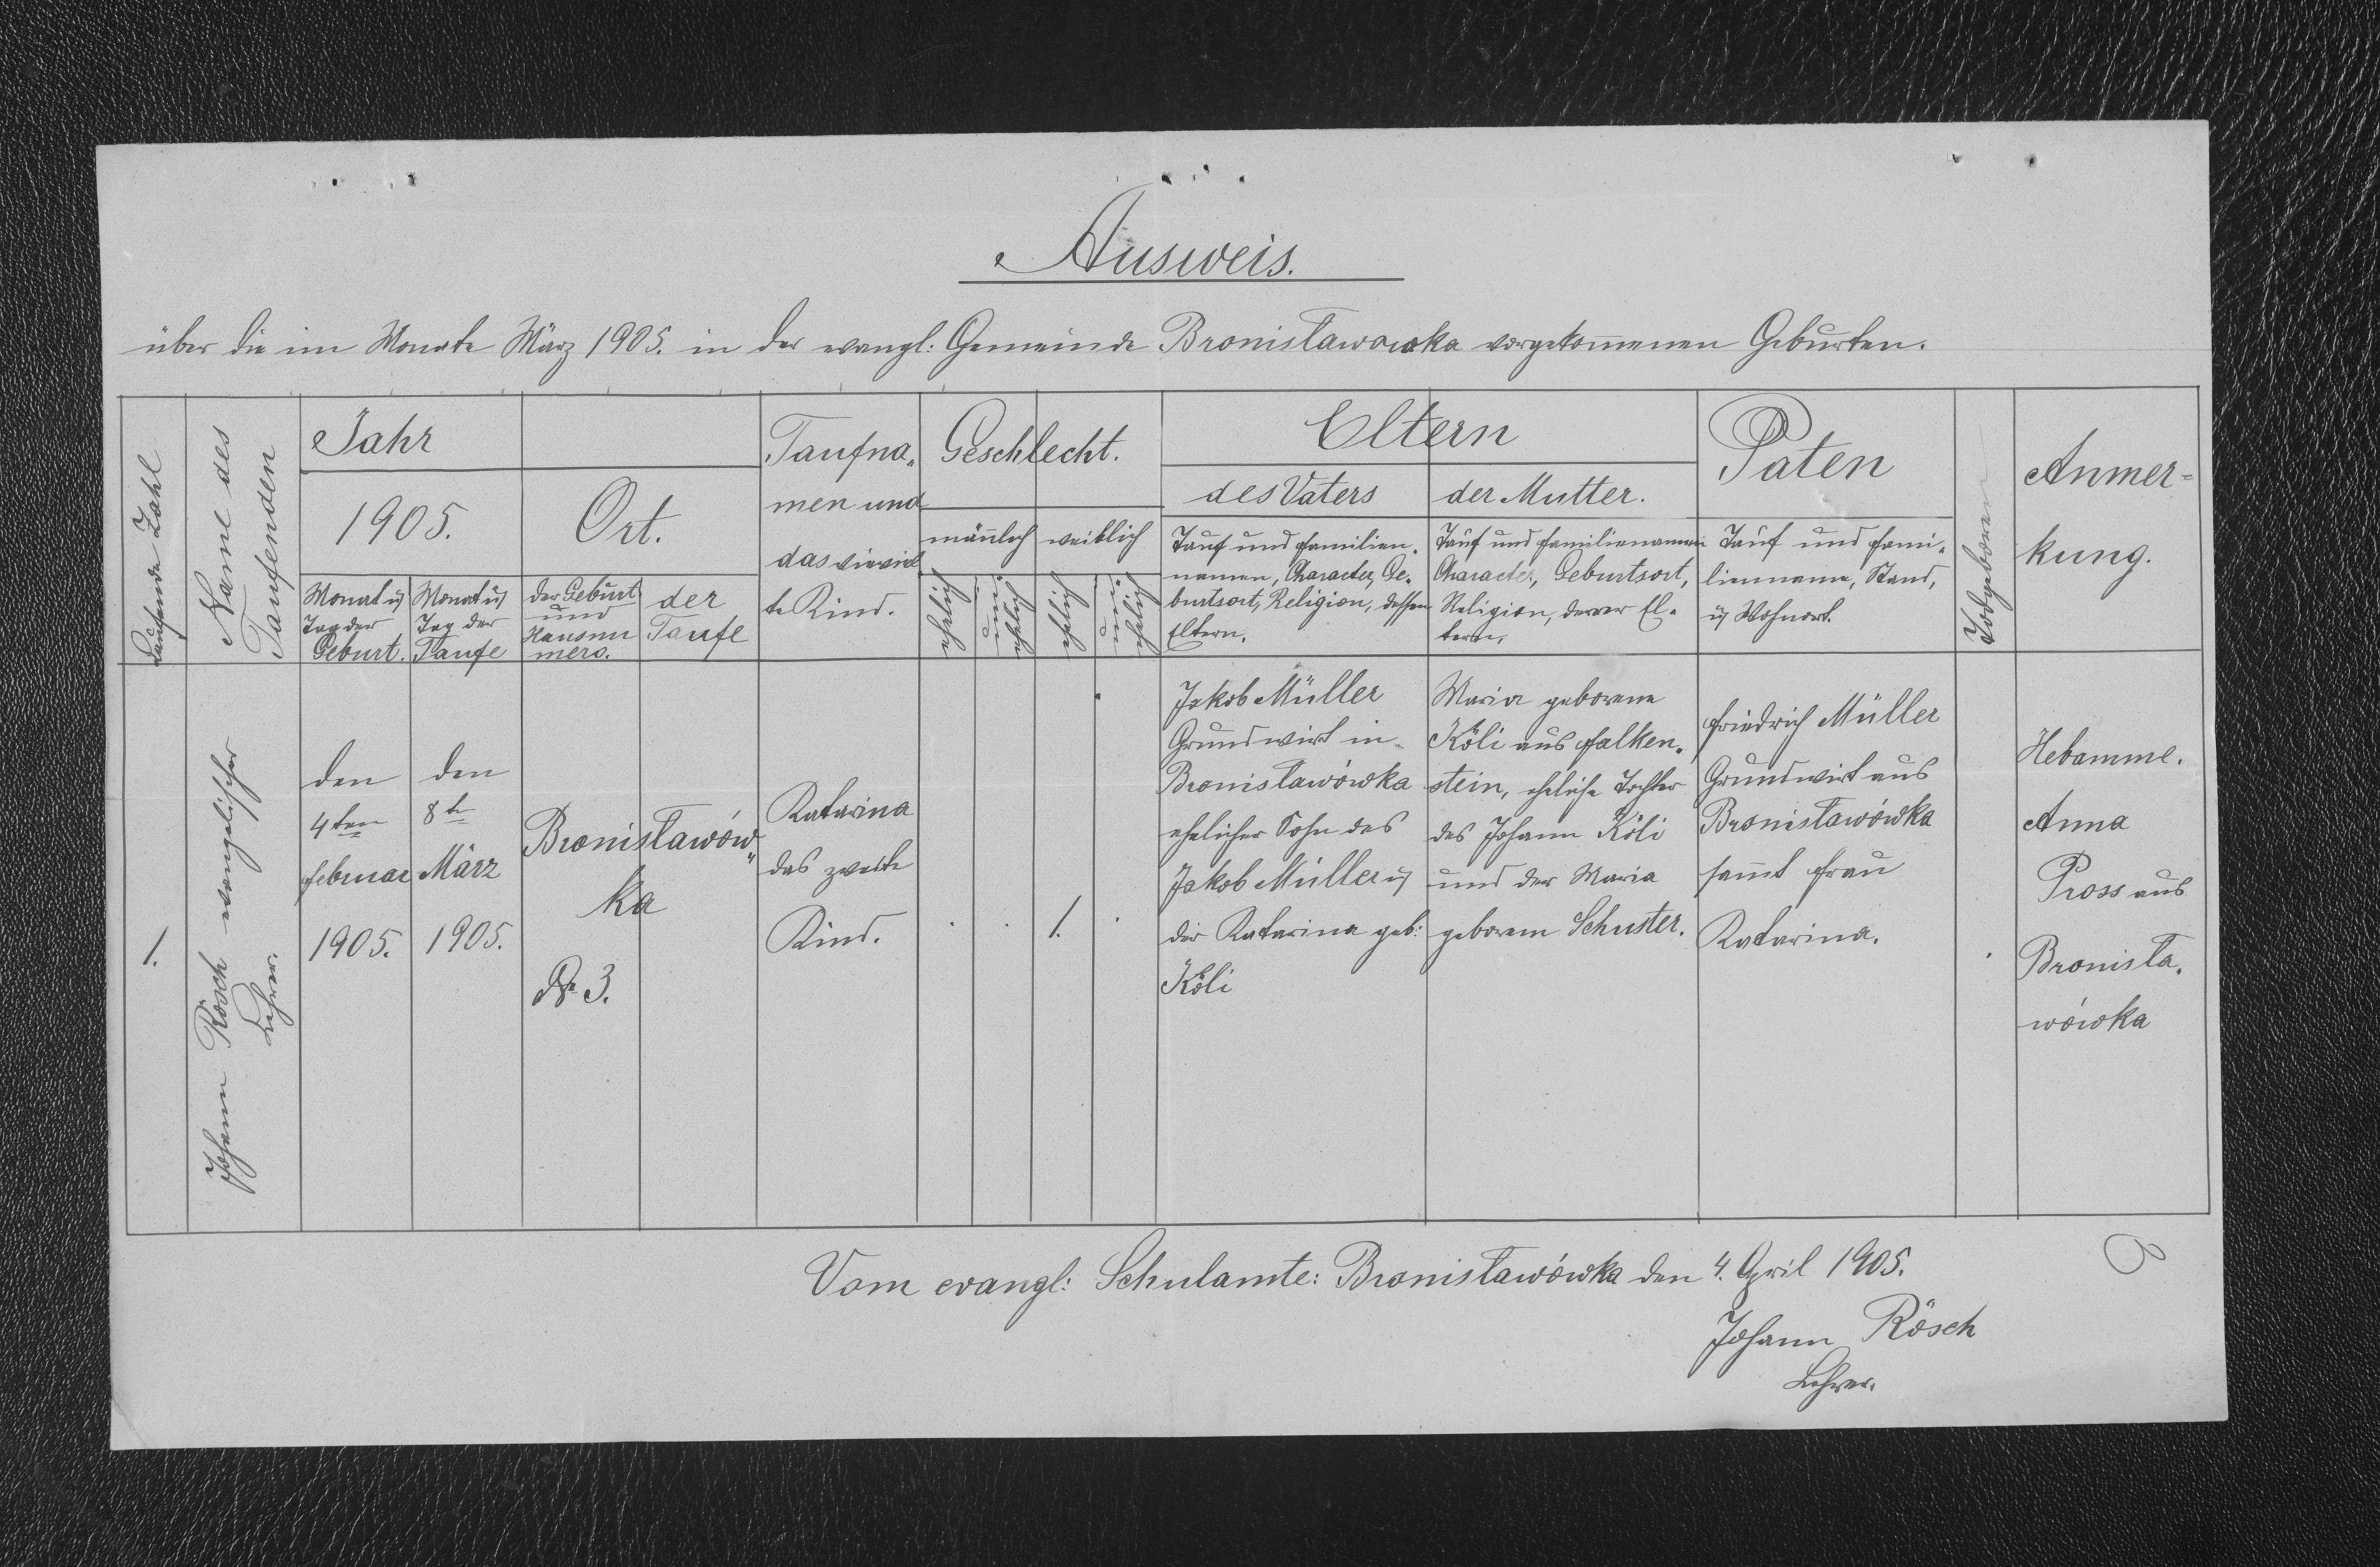 Ausweis.
über die im Monate März 1905. in der evangl: Gemeinde Bronisławowka vorgekommenen Geburten.
Laufende Zahl
Name des
Taufenden
Jahr
1905.
Monat u
Tag der
Geburt.
Monat u
Tag der
Taufe
Ort.
der Geburt
und
Hausnu
mero.
der
Taufe
Taufna„
men und
das wieviel
te Kind.
Geschlecht.
mänlich
weiblich
ehelich
un
ehelich
ehelich
un
ehelich
Eltern
des Vaters
Tauf und Familien„
namen, Character, Ge„
burtsort, Religion, dessen
Eltern.
der Mutter.
Tauf und Familiennamen
Character, Geburtsort,
Religion, derer El„
tern.
Paten
Tauf und Fami„
lienname, Stand,
u Wohnort.
Todgeboren
Anmer-
kung.
1.
Johann Rösch evangelischer
Lehrer.
den
4ten
Februar
1905.
den
8t
März
1905.
Bronisławów„
ka
No 3.
Katarina
das zweite
Kind.
1.
Jakob Müller
Grundwirt in
Bronisławówka
ehelicher Sohn des
Jakob Müller u
der Katarina geb:
Köli
Maria geborene
Köli aus Falken„
stein, eheliche Tochter
des Johann Köli
und der Maria
geborem Schuster.
Friedrich Müller
Grundwirt aus
Bronisławówka
samt Frau
Katarina.
Hebamme.
Anna
Pross aus
Bronisła„
wówka
Vom evangl: Schulamte: Bronisławówka den 4. April 1905.
Johann Rösch
Lehrer.